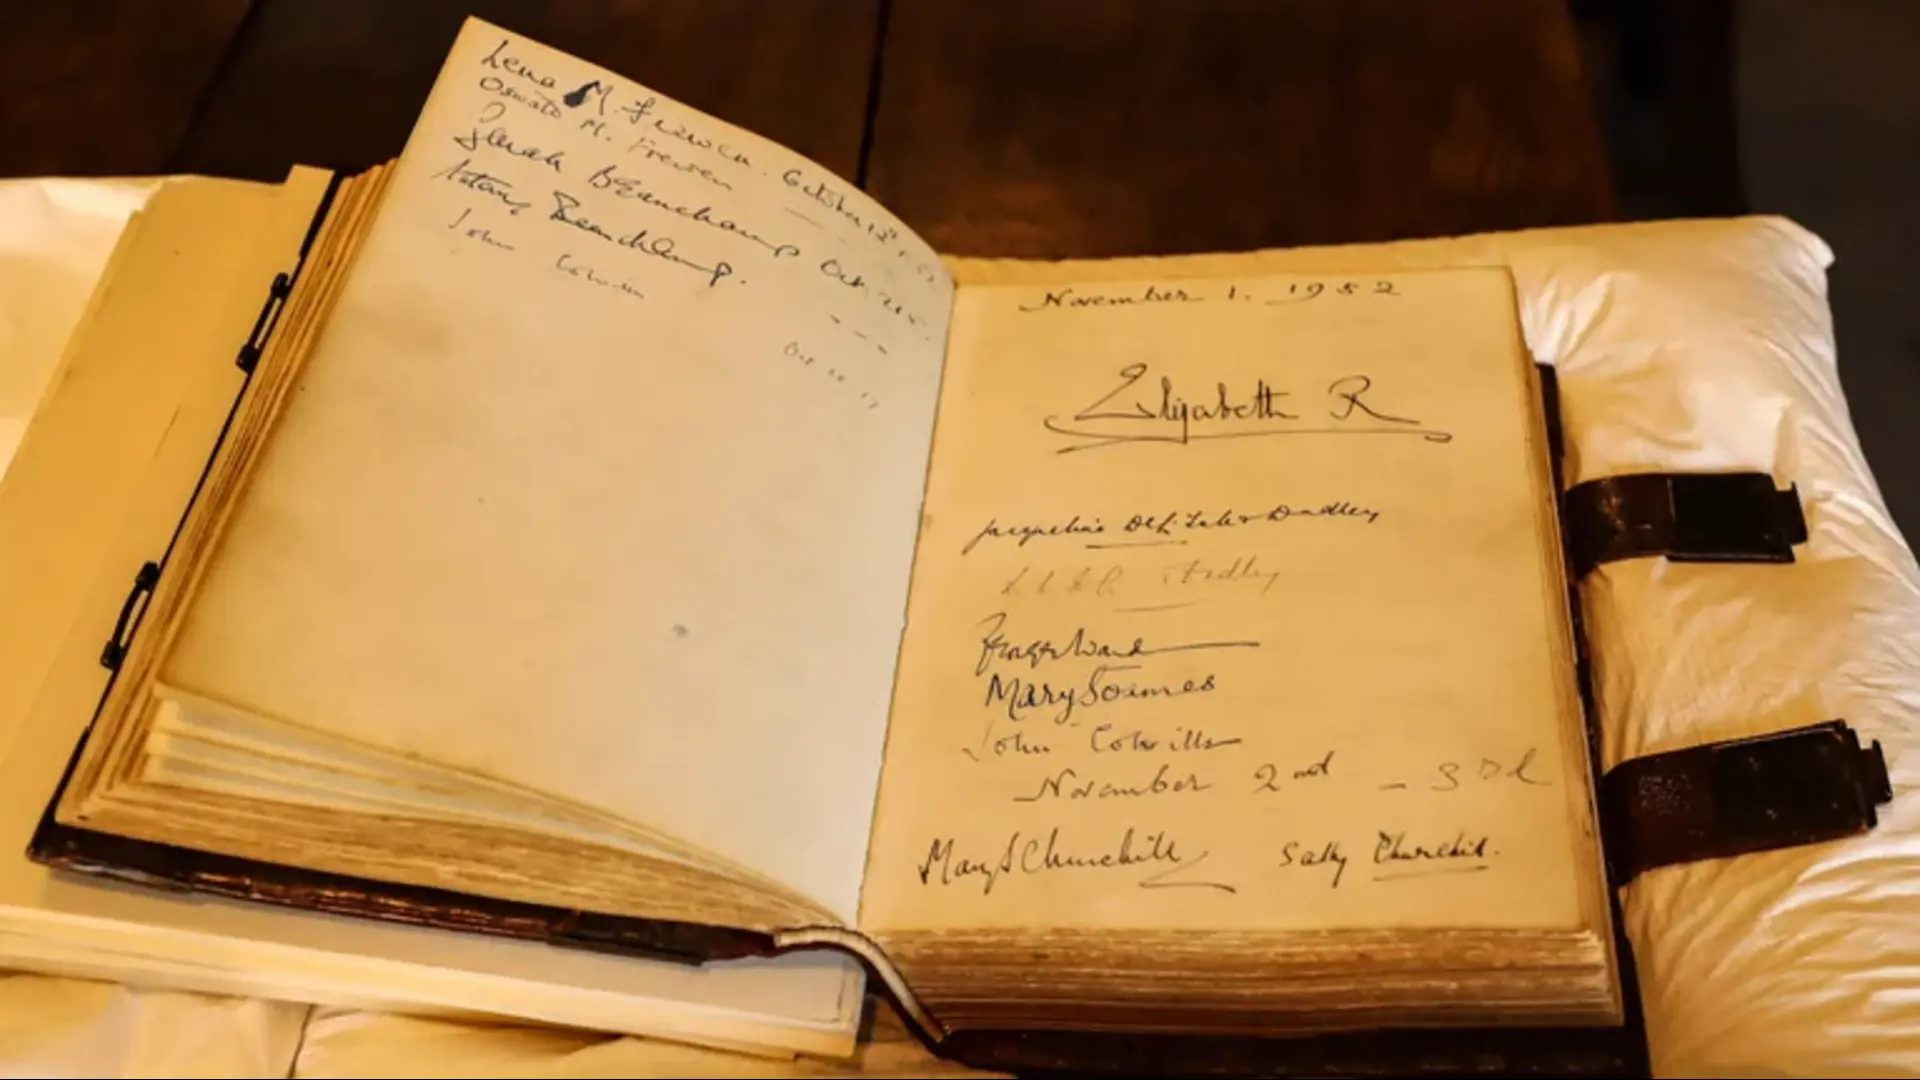 Lena M. Frewen. October 12th
Oswald M. Frewen
Sarah Beauchamp Oct.
Antony Beauchamp.
John Colville
Oct
November 1. 1952
Elizabeth R
Jacqueline Dudley
Dudley
Mary Soames
John Colville
November 2nd - 3rd
Mary S Churchill Sally Churchill.